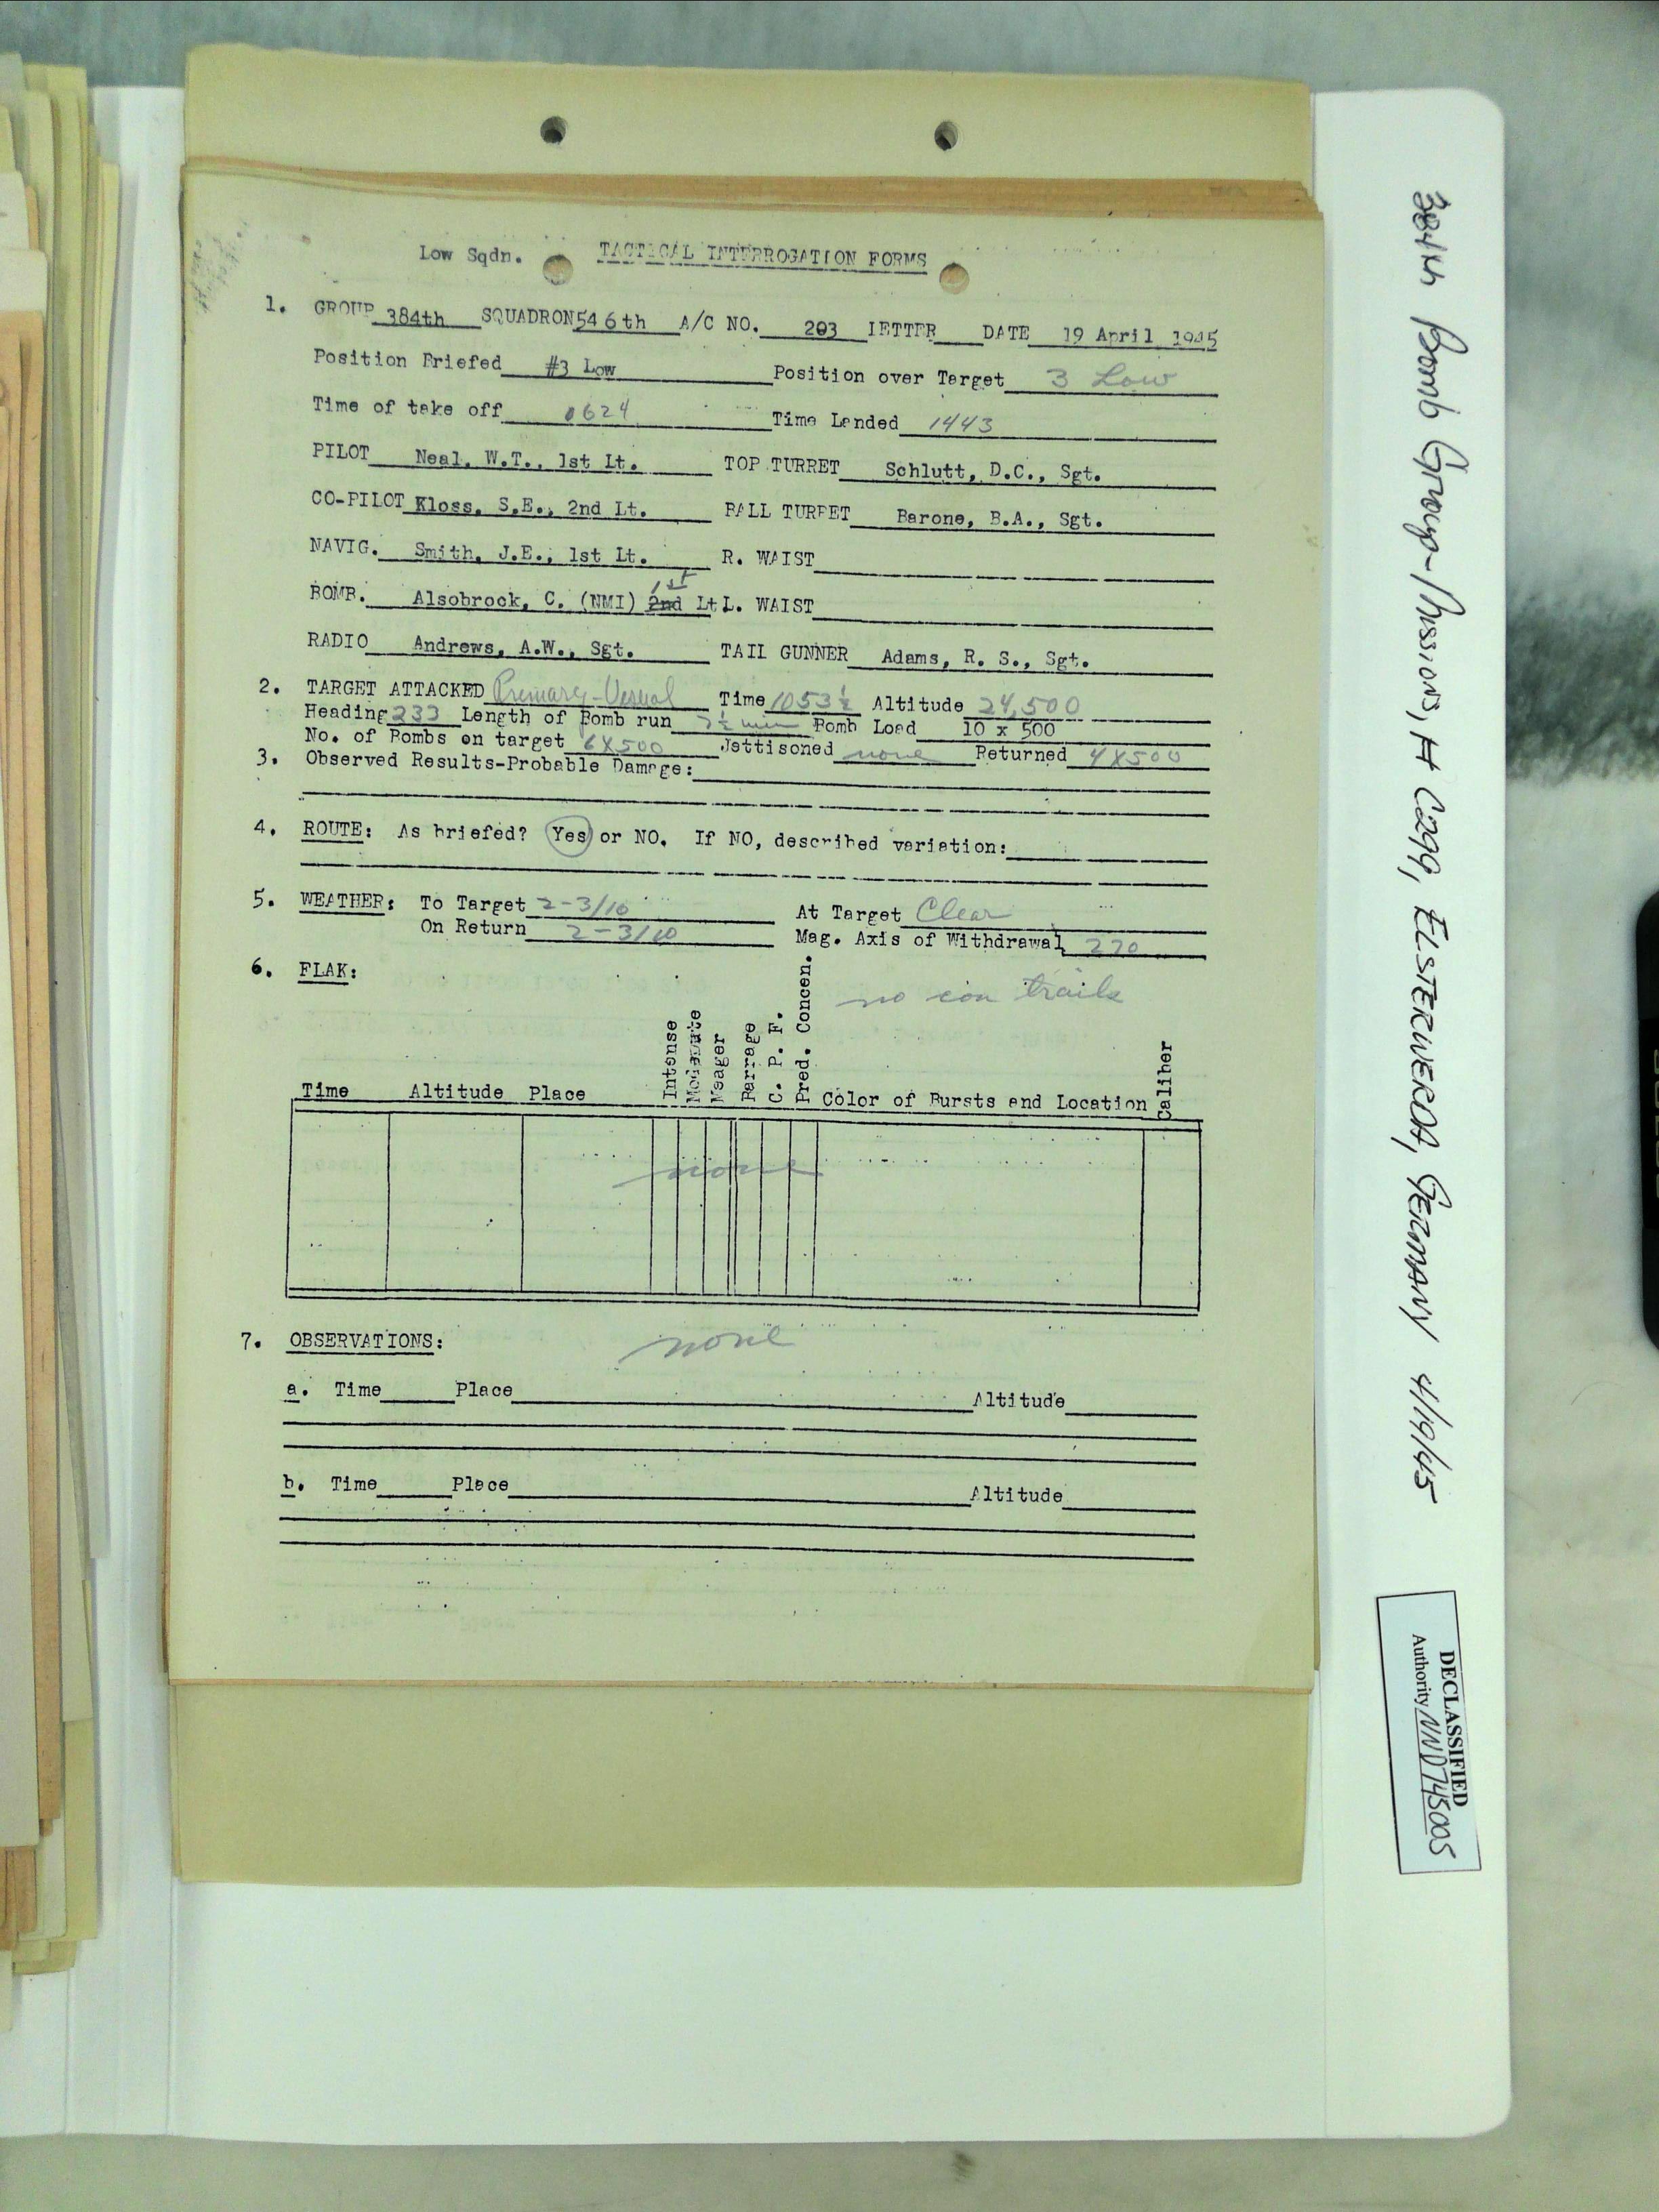 Low Sqdn. TACTICAL INTERROGATION FORMS
1. GROUP 384th SQUADRON 546th A/C NO. 203 LETTER DATE 19 April 1945
Position Briefed #3 Low Position over Target 3 Low
Time of take off 0624 Time Landed 1443
PILOT Neal, W.T., 1st Lt. TOP TURRET Schlutt, D.C., Sgt.
CO-PILOT Kloss, S.E., 2nd Lt. BALL TURRET Barone, B.A., Sgt.
NAVIG. Smith, J.E., 1st Lt. R. WAIST
1st
BOMB. Alsobrock, C. (NMI) 2nd Lt L. WAIST
RADIO Andrews, A.W., Sgt. TAIL GUNNER Adams, R. S., Sgt.
2. TARGET ATTACKED Primary-Visual Time 1053½ Altitude 24,500
Heading 233 Length of Bomb run 7½ min Bomb Load 10 x 500
No. of Bombs on target 6X500 Jettisoned none Returned 4X500
3. Observed Results-Probable Damage:
4. ROUTE: As briefed? Yes or NO. If NO, described variation:
5. WEATHER: To Target 2-3/10 At Target Clear
On Return 2-3/10 Mag. Axis of Withdrawal 270
6. FLAK: no con trails
Time Altitude Place Intense Moderate Meager Barrage C. P. F. Pred. Concen. Color of Bursts and Location Caliber
none
7. OBSERVATIONS: none
a. Time Place Altitude
b. Time Place Altitude
384th Bomb Group-Mission, # C299, ELSTERWERDA, GERMANY 4/19/45
DECLASSIFIED
Authority NND745005